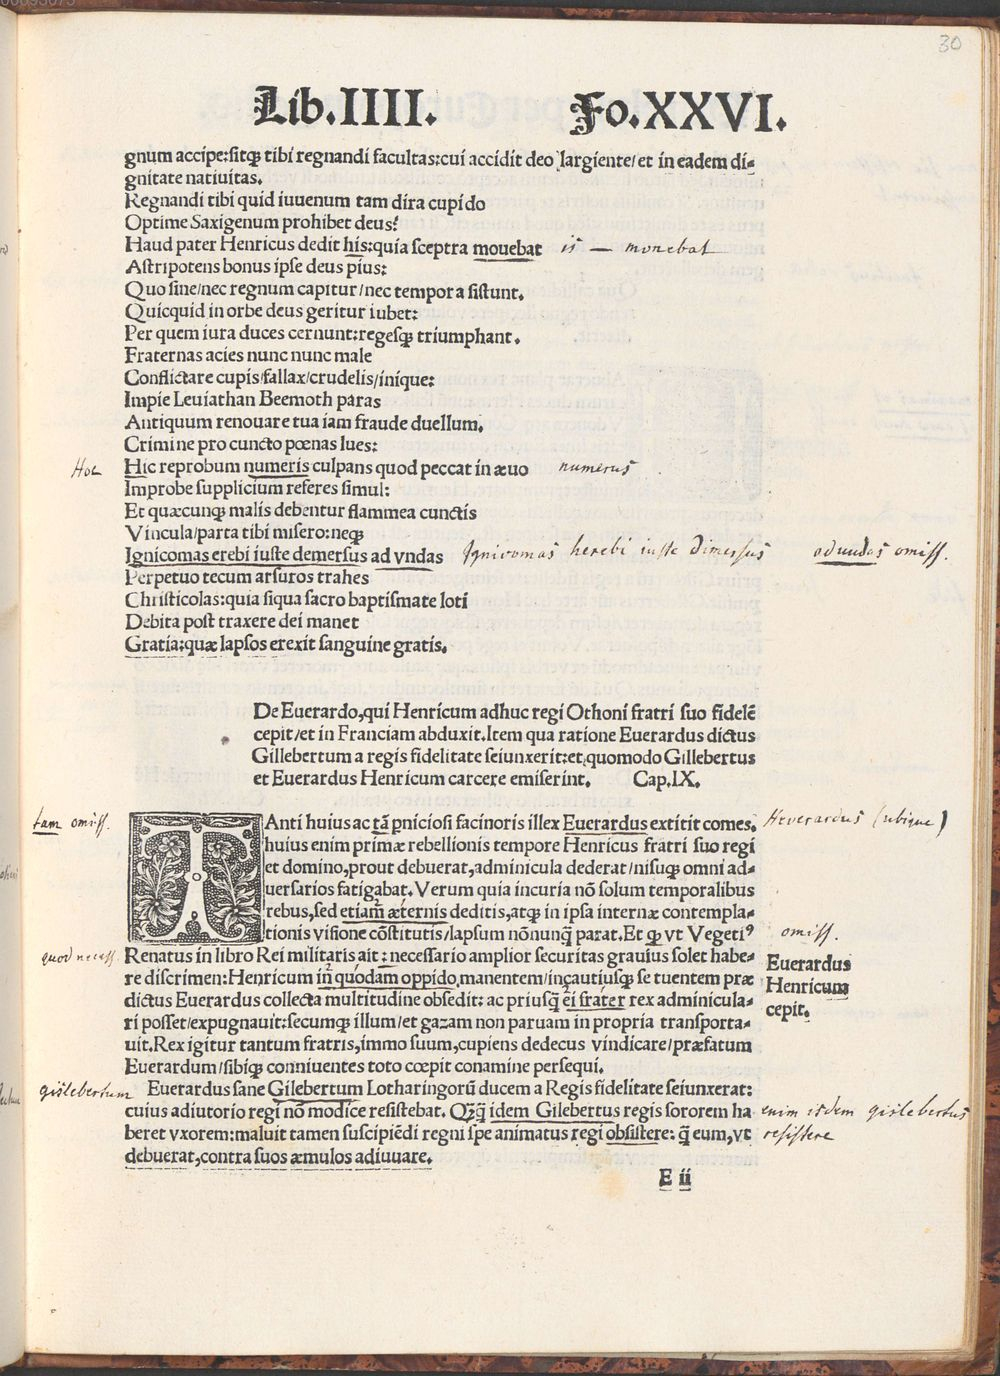 30
Lib.IIII. Fo.XXVI.
gnum accipe:sitqꝫ tibi regnandi facultas:cui accidit deo largiente/et in eadem di⸗
gnitate natiuitas.
Regnandi tibi quid iuuenum tam dira cupido
Optime Saxigenum prohibet deus?
Haud pater Henricus dedit his:quia sceptra mouebat is — monebat
Astripotens bonus ipse deus pius:
Quo sine/nec regnum capitur/nec tempora sistunt.
Quicquid in orbe deus geritur iubet:
Per quem iura duces cernunt:regesqꝫ triumphant.
Fraternas acies nunc nunc male
Conflictare cupis/fallax/crudelis/inique:
Impie Leuiathan Beemoth paras
Antiquum renouare tua iam fraude duellum.
Crimine pro cuncto pœnas lues:
Hoc Hic reprobum numeris culpans quod peccat in æuo numerus
Improbe supplicium referes simul:
Et quæcunqꝫ malis debentur flammea cunctis
Vincula/parta tibi misero:neqꝫ
Ignicomas erebi iuste demersus ad vndas Ignicomas herebi iuste dimersus ad undas omiss.
Perpetuo tecum arsuros trahes
Christicolas:quia siqua sacro baptismate loti
Debita post traxere dei manet
Gratia:quæ lapsos erexit sanguine gratis.
De Euerardo,qui Henricum adhuc regi Othoni fratri suo fidelē
cepit/et in Franciam abduxit.Item qua ratione Euerardus dictus
Gillebertum a regis fidelitate seiunxerit:et quomodo Gillebertus
et Euerardus Henricum carcere emiserint. Cap.IX.
tam omiss. TAnti huius ac tā pniciosi facinoris illex Euerardus extitit comes. Heverardus (ubique)
huius enim primæ rebellionis tempore Henricus fratri suo regi
et domino,prout debuerat,adminicula dederat/nisuqꝫ omni ad⸗
uersarios fatigabat.Verum quia incuria nō solum temporalibus
rebus,sed etiam̄ æternis deditis,atqꝫ in ipsa internæ contempla⸗
tionis visione cōstitutis/lapsum nōnunq̄ parat.Et qꝫ vt Vegetiꝰ omiss.
quod necess. Renatus in libro Rei militaris ait:necessario amplior securitas grauius solet habe⸗ Euerardus
re discrimen:Henricum in̄ quodam oppido manentem/incautiusqꝫ se tuentem præ Henricum
dictus Euerardus collecta multitudine obsedit: ac priusq̄ ei frater rex adminicula⸗ cepit.
ri posset/expugnauit:secumqꝫ illum/et gazam non paruam in propria transporta⸗
uit.Rex igitur tantum fratris,immo suum,cupiens dedecus vindicare/præfatum
Euerardum/sibiqꝫ conniuentes toto cœpit conamine persequi.
gislebertum Euerardus sane Gilebertum Lotharingorū ducem a Regis fidelitate seiunxerat:
cuius adiutorio regi nō modice resistebat. Qꝫq̄ idem Gilebertus regis sororem ha enim isdem gislebertus
beret vxorem:maluit tamen suscipiēdi regni spe animatus regi obsistere: q̄ eum,vt resistere
debuerat,contra suos æmulos adiuuare.
E ii